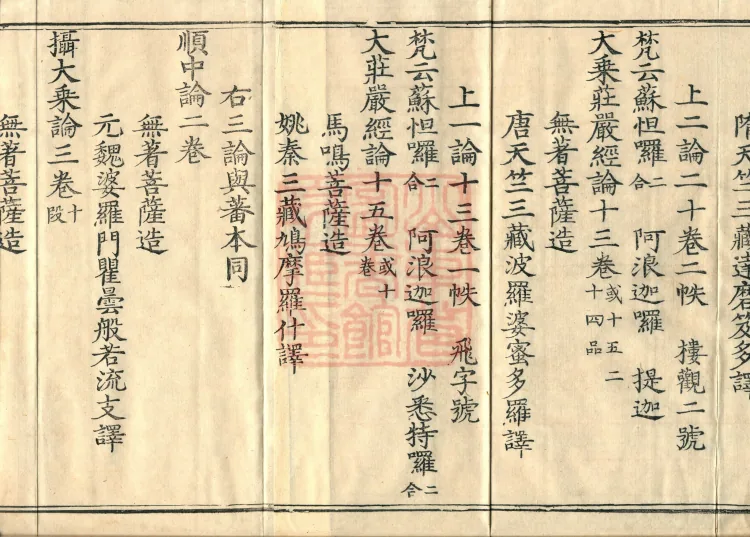 隋天竺三藏達磨笈多譯
上二論二十卷二帙 樓觀二號
梵云蘇怛囉二合 阿浪迦囉 提迦
大乘莊嚴經論十三卷或十五二十四品
無著菩薩造
唐天竺三藏波羅婆蜜多羅譯
上一論十三卷一帙 飛字號
梵云蘇怛囉二合 阿浪迦囉 沙悉特囉二合
大莊嚴經論十五卷或十卷
馬鳴菩薩造
姚秦三藏鳩摩羅什譯
右三論與蕃本同
順中論二卷
無著菩薩造
元魏婆羅門瞿曇般若流支譯
攝大乘論三卷十段
無著菩薩造